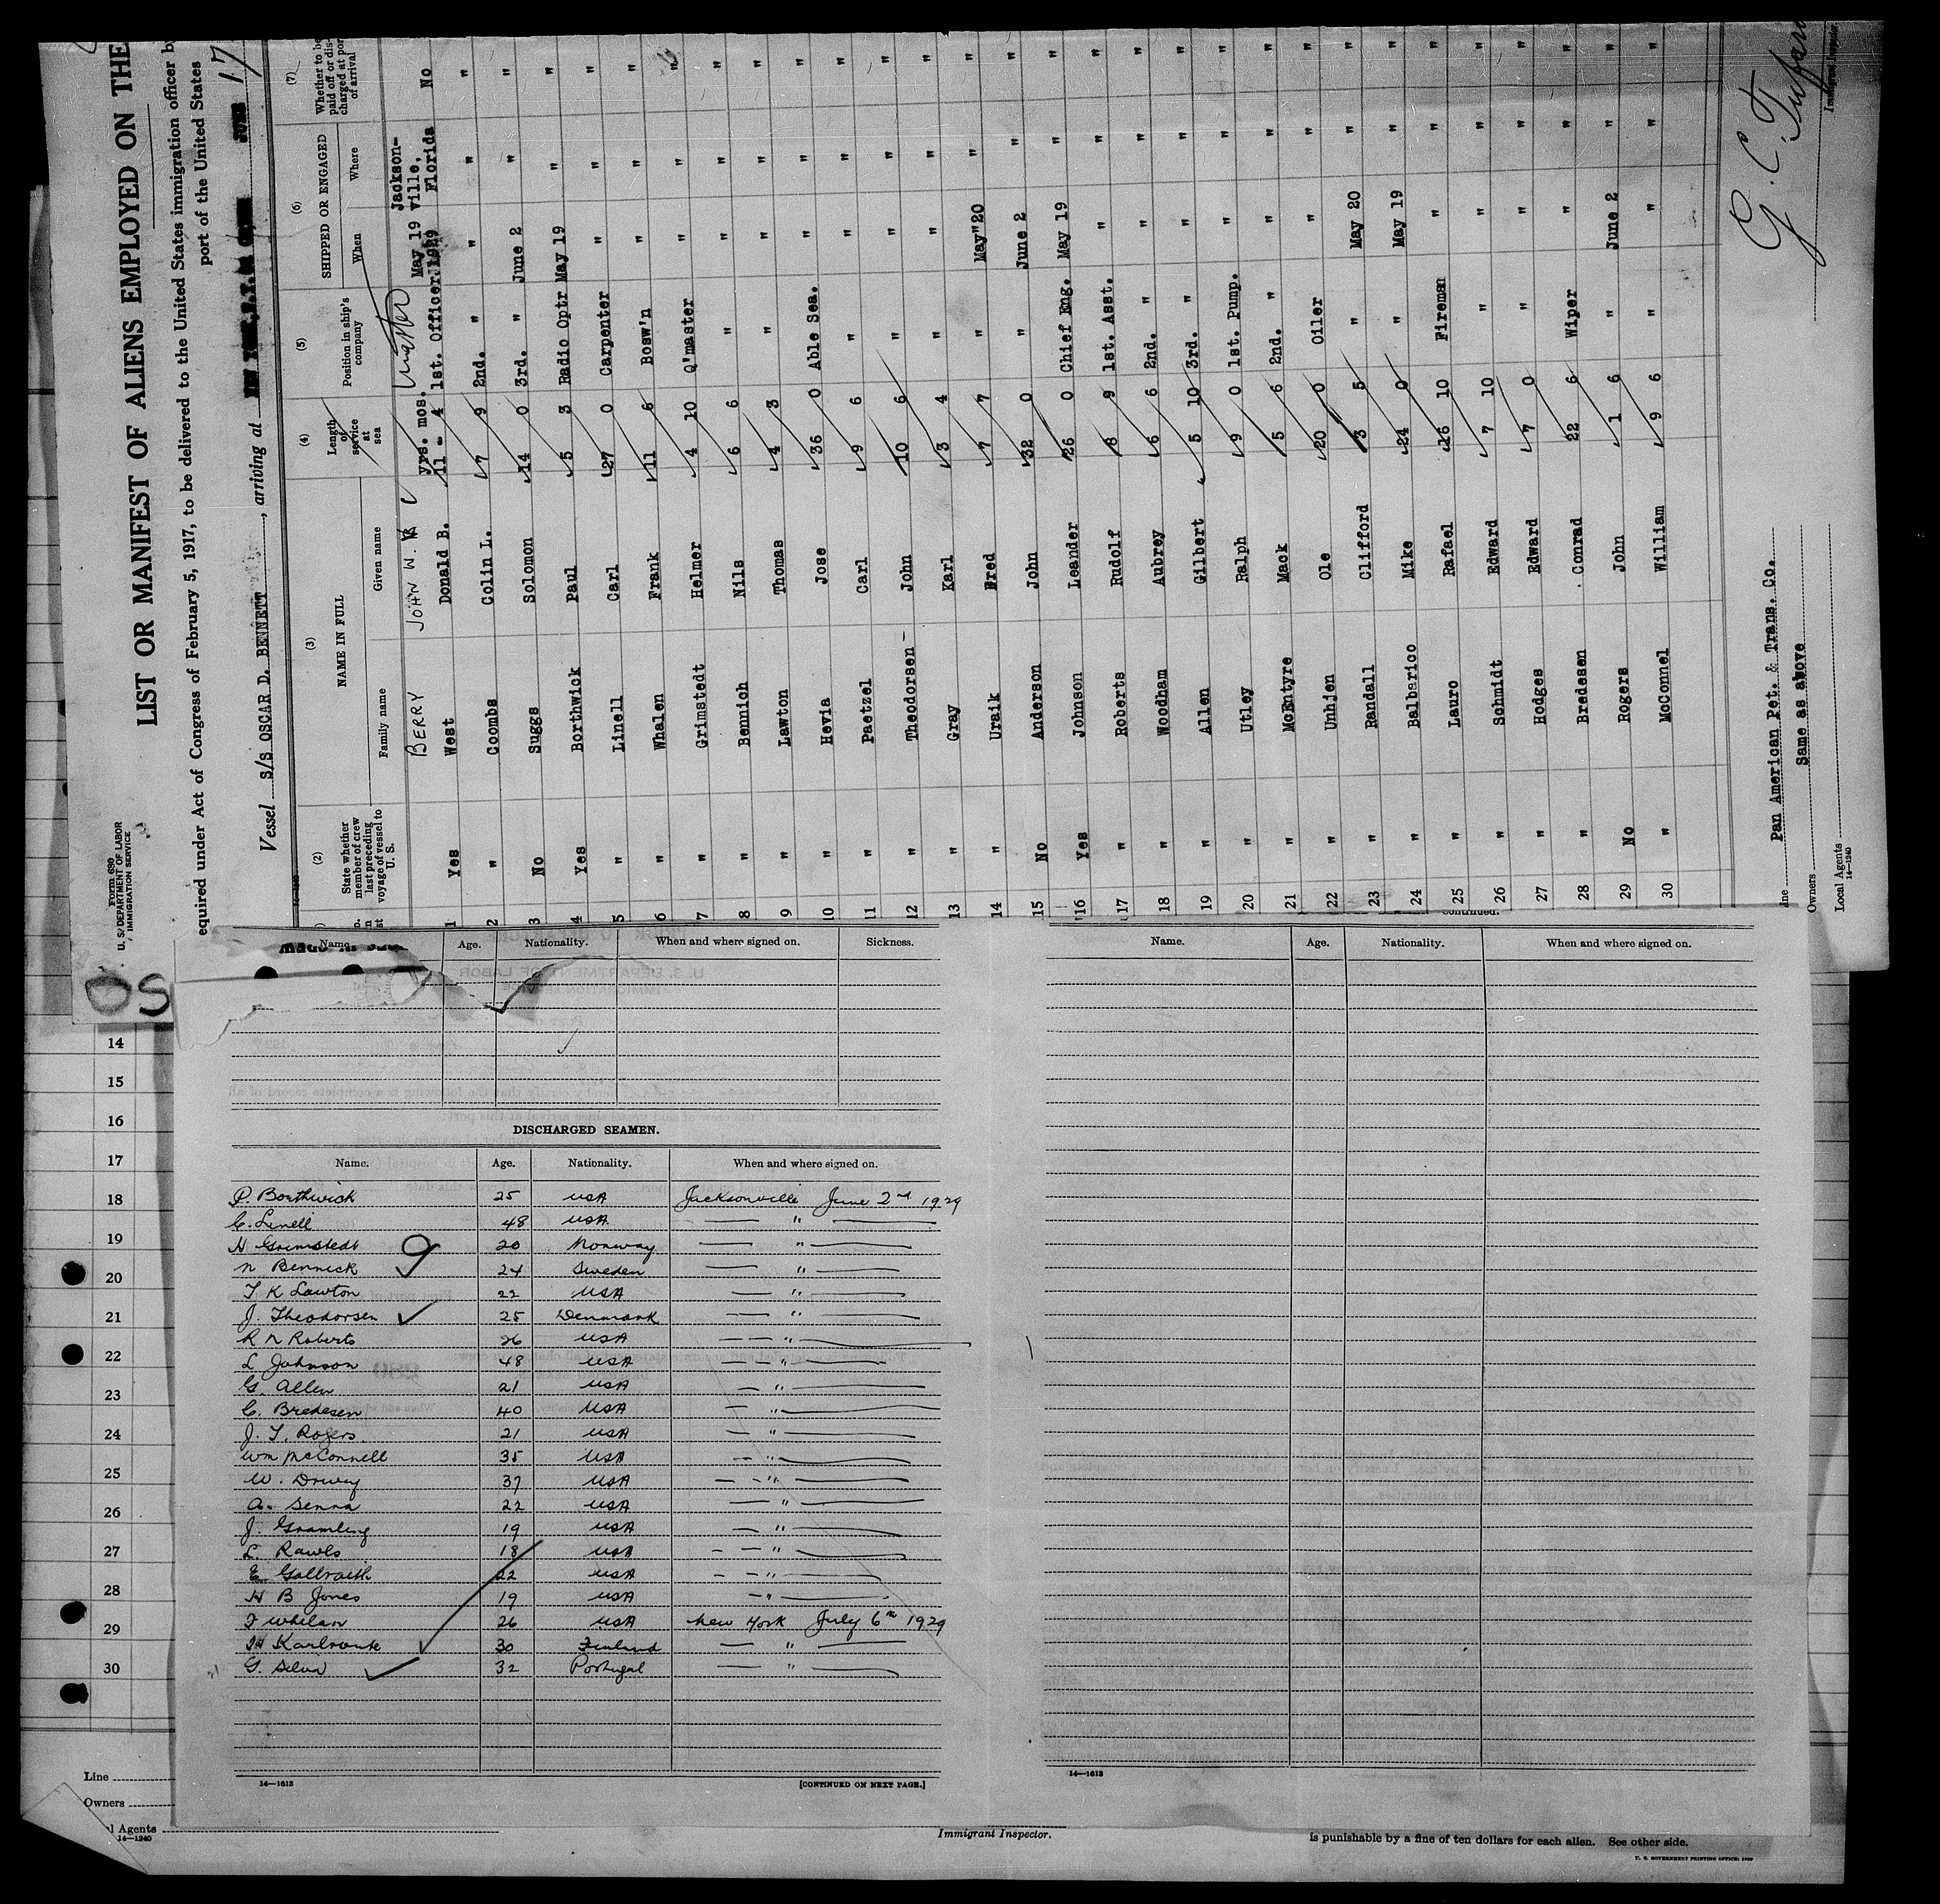 Form 680
U. S. DEPARTMENT OF LABOR
IMMIGRATION SERVICE
LIST OR MANIFEST OF ALIENS EMPLOYED ON THE
equired under Act of Congress of February 5, 1917, to be delivered to the United States immigration officer b
port of the United States
Vessel S/S OSCAR D. BENNETT, arriving at JUNE 17
(2) (3) (4) (5) (6) (7)
State whether member of crew last preceding voyage of vessel to U. S. NAME IN FULL Length of service at sea Position in ship's company SHIPPED OR ENGAGED Whether to be paid off or discharged at port of arrival
Family name Given name When Where
BERRY JOHN W. yrs. mos. Master May 19 Jacksonville, Florida No
1 Yes West Donald B. 11 - 4 1st. Officer 1929 " "
2 " Coombs Colin L. 7 9 2nd. " " " "
3 No Suggs Solomon 14 0 3rd. " June 2 " "
4 Yes Borthwick Paul 5 3 Radio Optr May 19 " "
5 " Linell Carl 27 0 Carpenter " " "
6 " Whalen Frank 11 6 Bosw'n " " "
7 " Grimstedt Helmer 4 10 Q'master " " "
8 " Bennich Nils 6 6 " " " "
9 " Lawton Thomas 4 3 " " " "
10 " Hevia Jose 36 0 Able Sea. " " "
11 " Paetzel Carl 9 6 " " " "
12 " Theodorsen John 10 6 " " " "
13 " Gray Karl 3 4 " " " "
14 " Uraik Fred 7 7 " May "20 " "
15 No Anderson John 32 0 " June 2 " "
16 Yes Johnson Leander 26 0 Chief Eng. May 19 " "
17 " Roberts Rudolf 8 9 1st. Asst. " " "
18 " Woodham Aubrey 6 6 2nd. " " " "
19 " Allen Gilbert 5 10 3rd. " " " "
20 " Utley Ralph 9 0 1st. Pump. " " "
21 " McEntyre Mack 5 6 2nd. " " " "
22 " Unhien Ole 20 0 Oiler " " "
23 " Randall Clifford 3 5 " May 20 " "
24 " Balbarico Mike 24 0 " May 19 " "
25 " Lauro Rafael 16 10 Fireman " " "
26 " Schmidt Edward 7 10 " " " "
27 " Hodges Edward 7 0 " " " "
28 " Bredesen Conrad 22 6 Wiper " " "
29 No Rogers John 1 6 " June 2 " "
30 " McConnel William 9 6 " " " "
ine Pan American Pet. & Trans. Co.
Owners Same as above
Local Agents
14—1240
G. C. Immigrant Inspector.
OS
Name. Age. Nationality. When and where signed on. Sickness.
DISCHARGED SEAMEN.
Name. Age. Nationality. When and where signed on.
P. Borthwick 25 USA Jacksonville June 2nd 1929
C. Linell 48 USA "
H Grimstedt 20 Norway "
N Bennick 24 Sweden "
T K Lawton 22 USA "
J. Theodorsen 25 Denmark "
R N Roberts 26 USA "
L Johnson 48 USA "
G. Allen 21 USA "
C. Bredesen 40 USA "
J. T. Rogers. 21 USA "
Wm McConnell 35 USA "
W. Drury 37 USA "
A. Senna 22 USA "
J. Gramling 19 USA "
L. Rawls 18 USA "
E Galbraith 22 USA "
H B Jones 19 USA "
F Whelan 26 USA New York July 6th 1929
Karlronte 30 Finland "
G. Silva 32 Portugal "
14—1613 [CONTINUED ON NEXT PAGE.]
Continued.
Name. Age. Nationality. When and where signed on.
14—1613
14
15
16
17
18
19
20
21
22
23
24
25
26
27
28
29
30
Line
Owners
l Agents
14—1240
Immigrant Inspector.
is punishable by a fine of ten dollars for each alien. See other side.
U. S. GOVERNMENT PRINTING OFFICE: